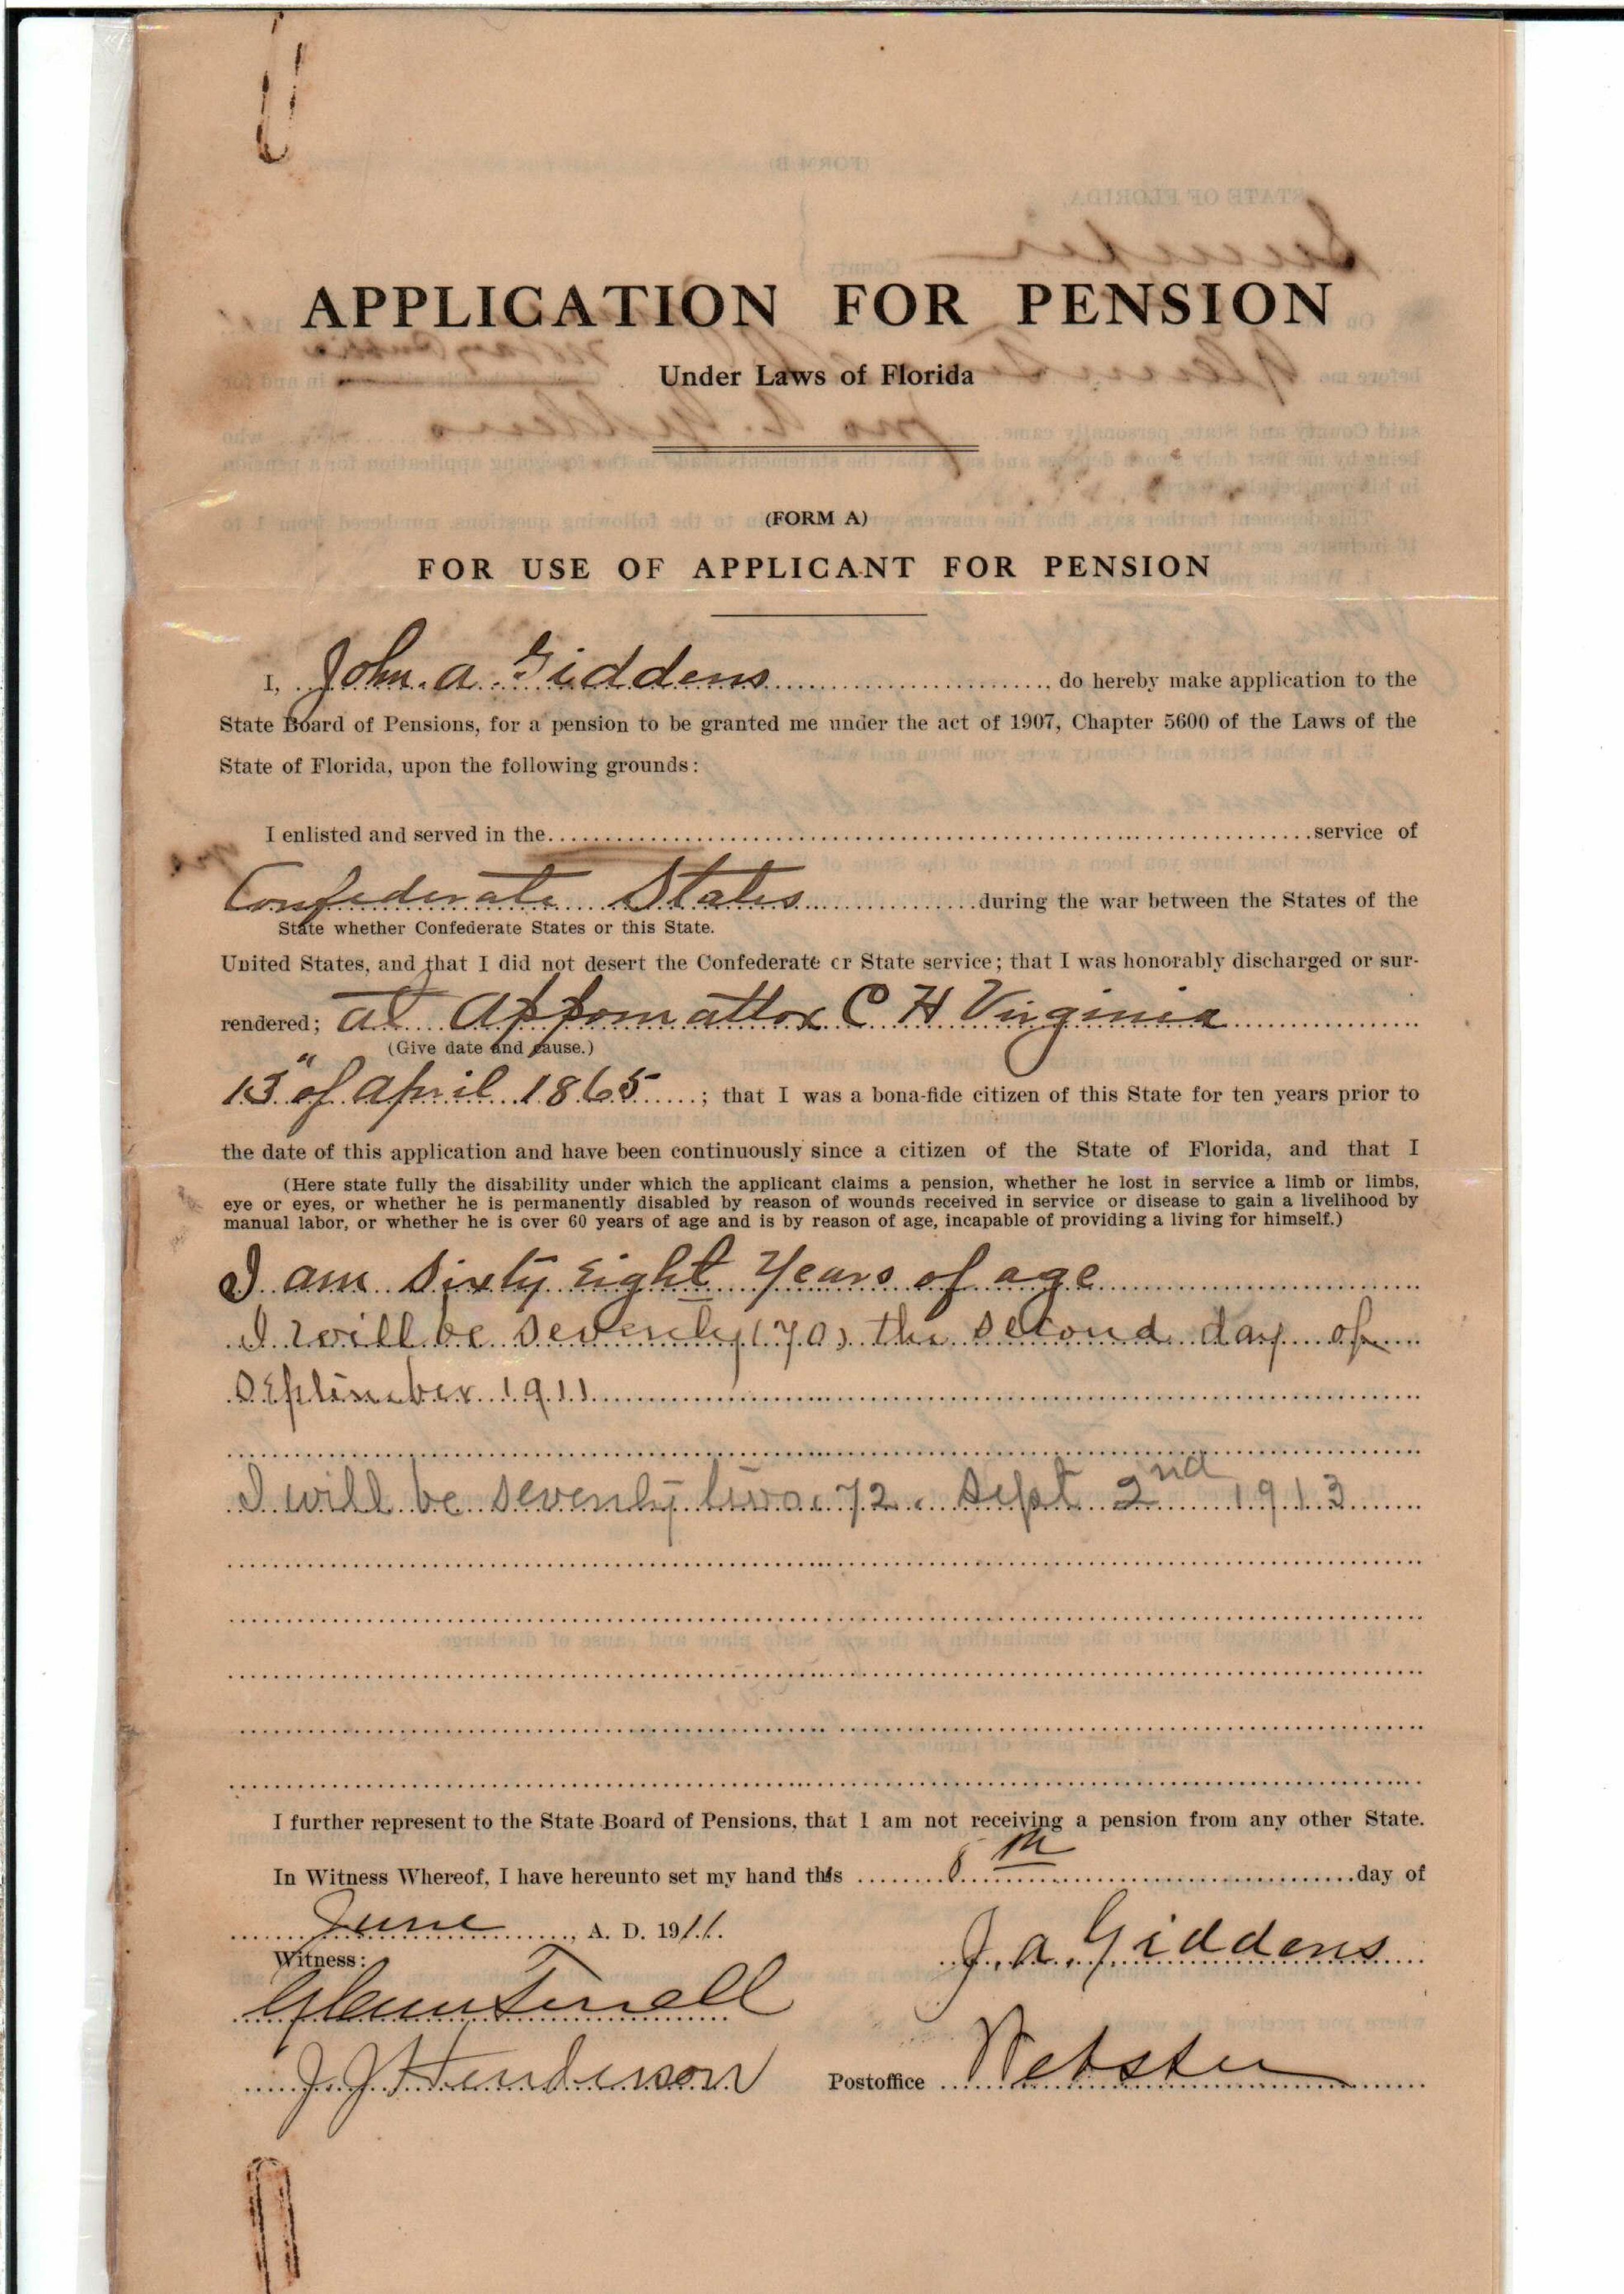 APPLICATION FOR PENSION
Under Laws of Florida
(FORM A)
FOR USE OF APPLICANT FOR PENSION
I, John. a. Giddens, do hereby make application to the
State Board of Pensions, for a pension to be granted me under the act of 1907, Chapter 5600 of the Laws of the
State of Florida, upon the following grounds:
I enlisted and served in the service of
Confederate States during the war between the States of the
State whether Confederate States or this State.
United States, and that I did not desert the Confederate or State service; that I was honorably discharged or sur-
rendered; at Appomattox C H Virginia
(Give date and cause.)
13" of April 1865; that I was a bona-fide citizen of this State for ten years prior to
the date of this application and have been continuously since a citizen of the State of Florida, and that I
(Here state fully the disability under which the applicant claims a pension, whether he lost in service a limb or limbs,
eye or eyes, or whether he is permanently disabled by reason of wounds received in service or disease to gain a livelihood by
manual labor, or whether he is over 60 years of age and is by reason of age, incapable of providing a living for himself.)
I am Sixty Eight Years of age
I will be seventy (70) the second day of
September 1911
I will be seventy two 72 Sept 2nd 1913
I further represent to the State Board of Pensions, that I am not receiving a pension from any other State.
In Witness Whereof, I have hereunto set my hand this 8th day of
June, A. D. 1911.
Witness:
J. a. Giddens
Glenn Terrell
J. J. Henderson
Postoffice Webster